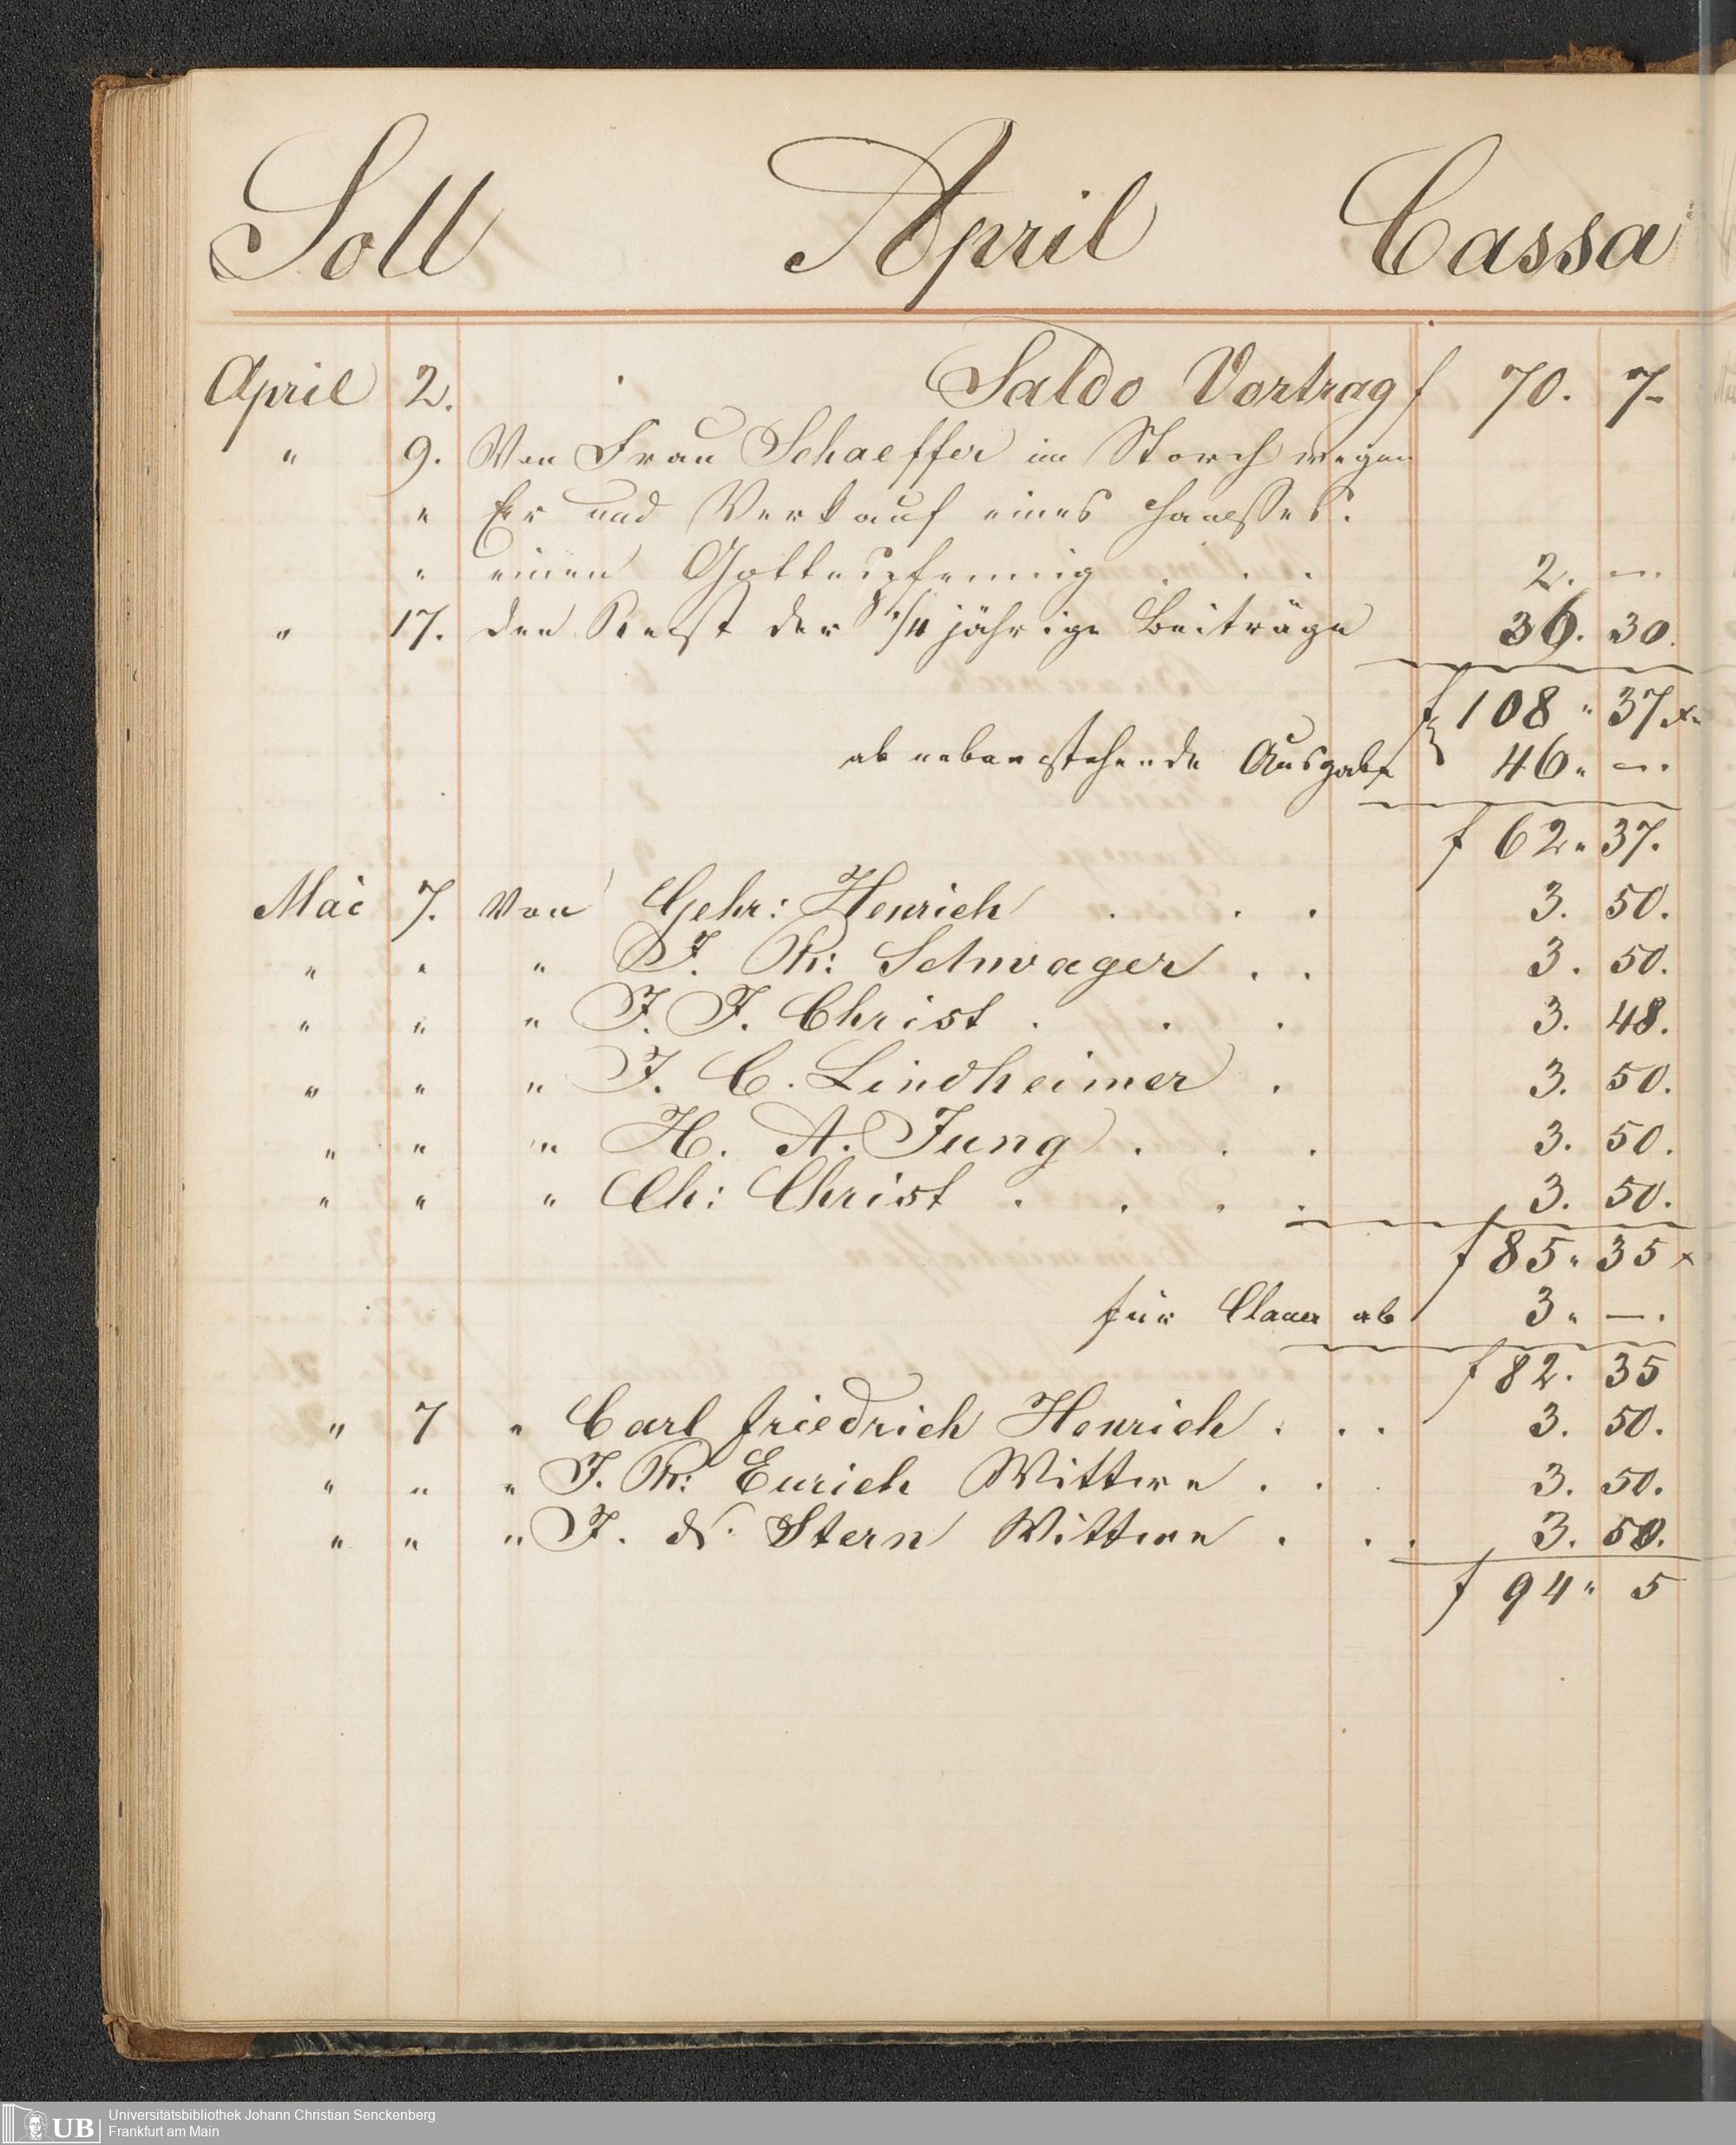 Soll April Cassa
April 2. Saldo Vortrag f 70. 7-
" 9. Von Frau Schaeffer im Storch wegen
" Er und Verkauf eines Hausses.
" einen Gottespfennig . . . 2. —.
" 17. den Rest der 1/4 jährige Beiträge 36. 30.
f 108 " 37 x.
ab nebenstehende Ausgabe 46 " —.
f 62 " 37.
Mai 7. Von Gehr: Henrich . . . 3. 50.
" " " J. Ph: Schwager . . 3. 50.
" " " J. J. Christ . . . 3. 48.
" " " J. C. Lindheimer . 3. 50.
" " " H. A. Jung . . . 3. 50.
" " " Ch: Christ . . . . 3. 50.
f 85 " 35 x
für Clauer ab 3 " —.
f 82. 35
" 7 " Carl Friedrich Henrich . . . 3. 50.
" " " J. Ph: Eurich Wittwe . . 3. 50.
" " " J. N. Stern Wittwe . . . 3. 50.
f 94 " 5
UB Universitätsbibliothek Johann Christian Senckenberg
Frankfurt am Main